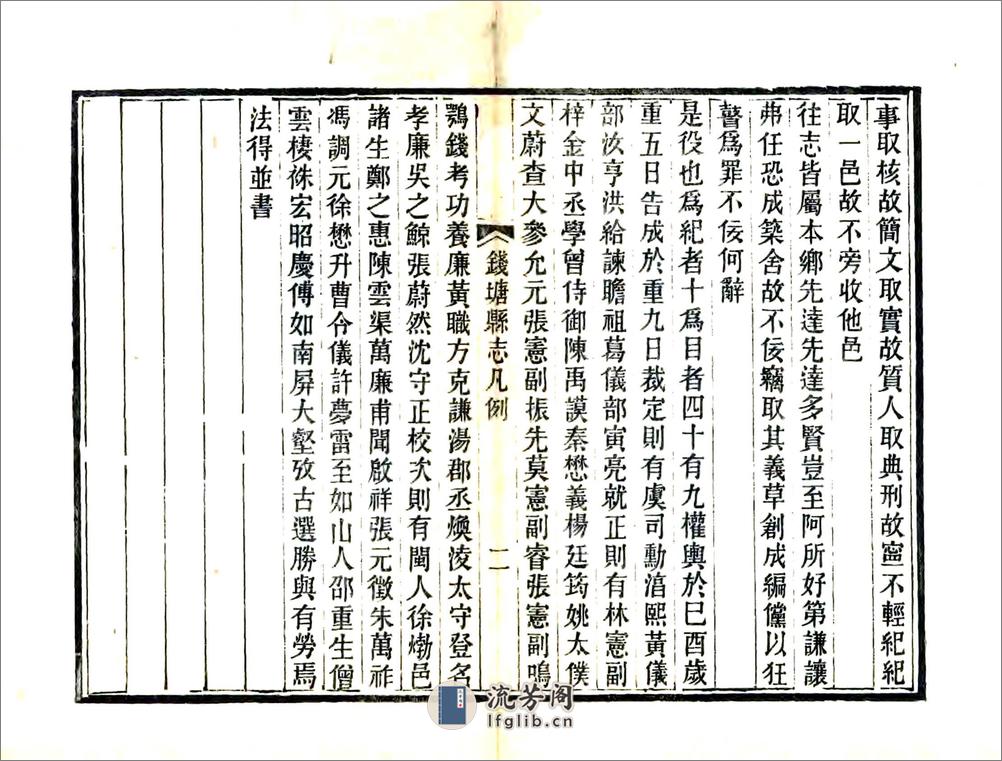 事取核故簡文取實故質人取典刑故寧不輕紀紀
取一邑故不旁收他邑
往志皆屬本鄉先達先達多賢豈至阿所好第謙讓
弗任恐成築舍故不佞竊取其義草創成編儻以狂
瞽爲罪不佞何辭
是役也爲紀者十爲目者四十有九權輿於巳酉歲
重五日告成於重九日裁定則有虞司勳淳熙黃儀
部汝亨洪給諫瞻祖葛儀部寅亮就正則有林憲副
梓金中丞學曾侍御陳禹謨秦懋義楊廷筠姚太僕
文蔚查大參允元張憲副振先莫憲副睿張憲副鳴
錢塘縣志凡例
二
鶚錢考功養廉黃職方克謙湯郡丞煥淩太守登名
孝廉吳之鯨張蔚然沈守正校次則有閩人徐𤊹邑
諸生鄭之惠陳雲渠萬廉甫聞啟祥張元徵朱萬祚
馮調元徐懋升曹令儀許夢雷至如山人邵重生僧
雲棲袾宏昭慶傅如南屏大壑攷古選勝與有勞焉
法得並書
流芳阁
lfglib.cn